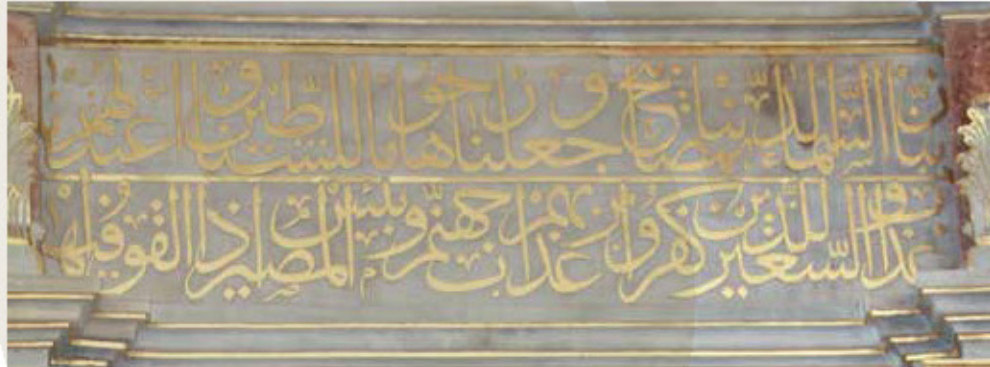 زينا السماء الدنيا بمصابيح وجعلناها رجوما للشياطين واعتدنا لهم
عذاب السعير وللذين كفروا بربهم عذاب جهنم وبئس المصير اذا القوا فيها